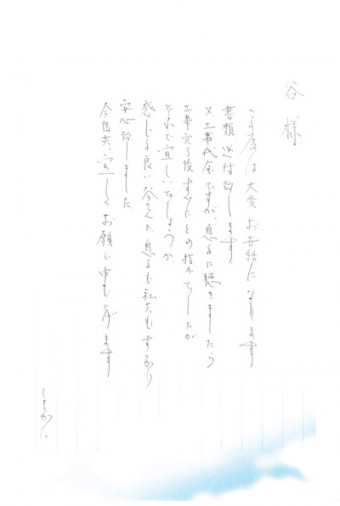 谷様
この度は大変お世話になります
書類送付致します
又工事代金ですが、息子に聴きましたら
工事完了後すぐにとの指示でしたが
それで宜しいでしょうか、
感じの良い谷さんに息子も私共もすっかり
安心致しました
今后共、宜しくお願い申し上げます